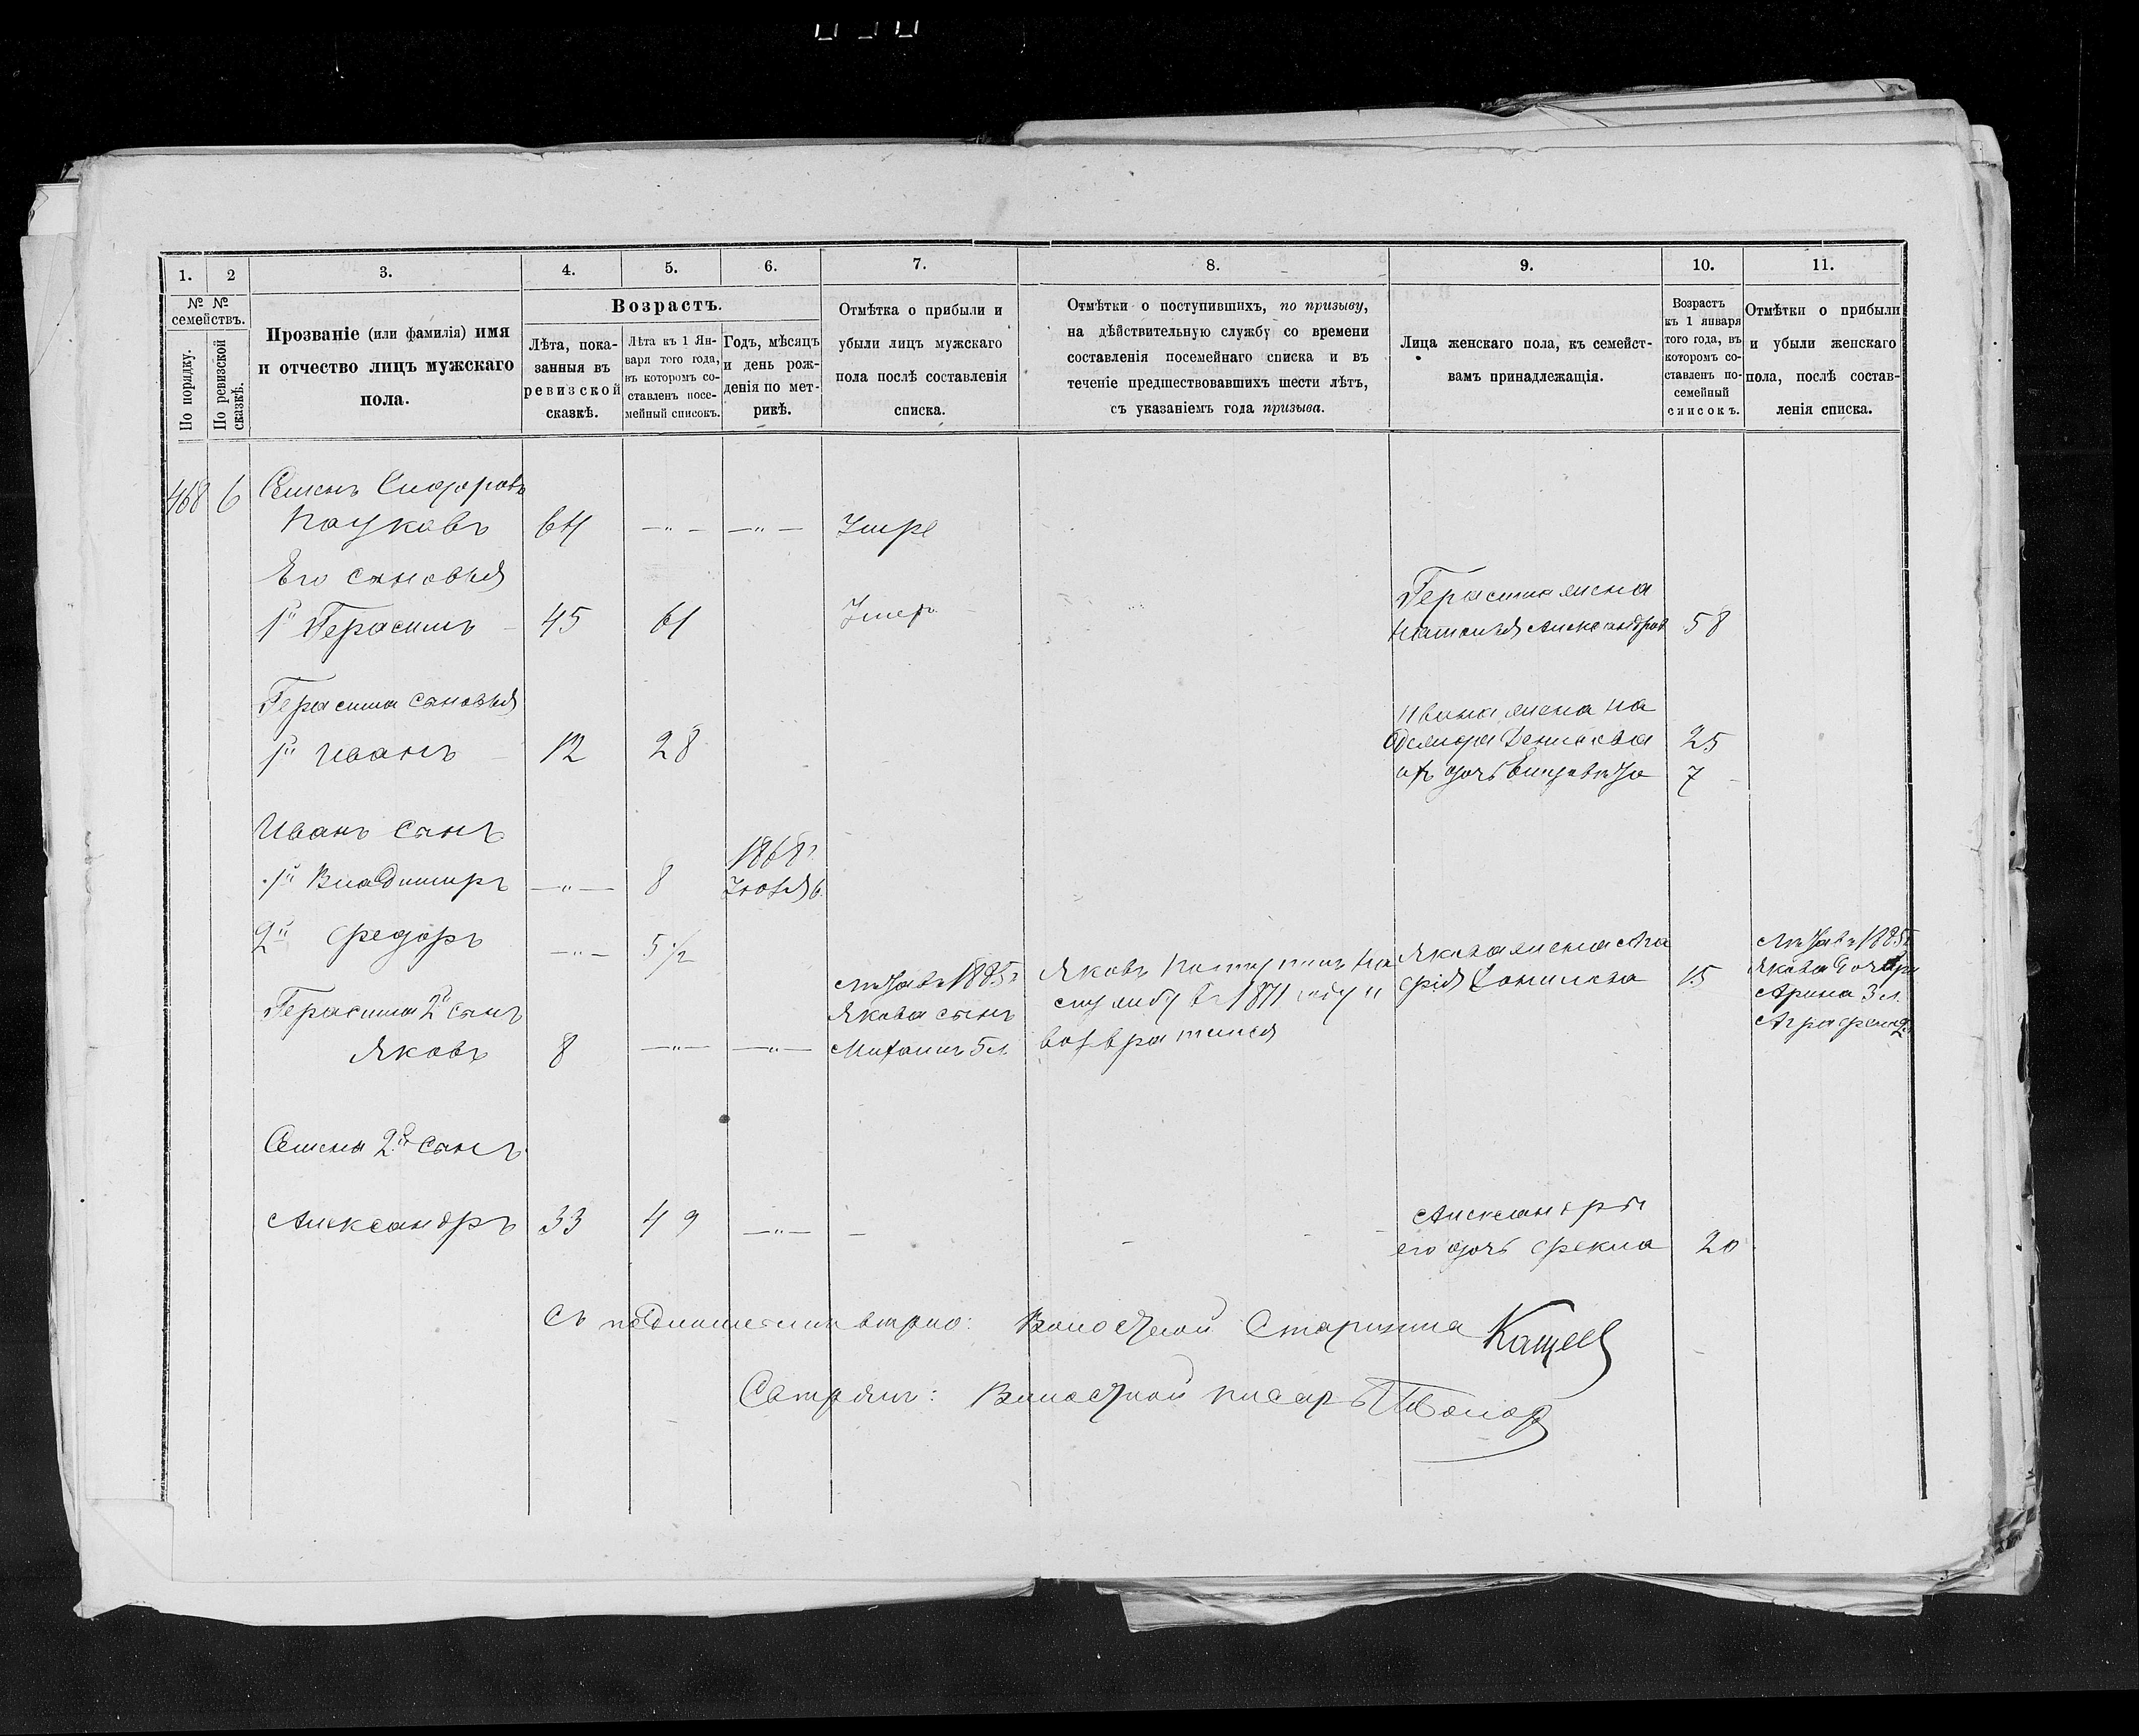 1.
2
3.
4.
5.
6.
7.
8.
9.
10.
11.
№ №
семействъ.
По порядку.
По ревизской
сказкѣ.
Прозваніе (или фамилія) имя
и отчество лицъ мужскаго
пола.
Возрастъ.
Лѣта, пока-
занныя въ
ревизской
сказкѣ.
Лѣта къ 1 Ян-
варя того года,
въ которомъ со-
ставленъ посе-
мейный списокъ.
Годъ, мѣсяцъ
и день рож-
денія по мет-
рикѣ.
Отмѣтка о прибыли и
убыли лицъ мужскаго
пола послѣ составленія
списка.
Отмѣтки о поступившихъ, по призыву,
на дѣйствительную службу со времени
составленія посемейнаго списка и въ
теченіе предшествовавшихъ шести лѣтъ,
съ указаніемъ года призыва.
Лица женскаго пола, къ семейст-
вамъ принадлежащія.
Возрастъ
къ 1 января
того года, въ
которомъ со-
ставленъ по-
семейный
списокъ.
Отмѣтки о прибыли
и убыли женскаго
пола, послѣ состав-
ленія списка.
468 6 Семенъ Сидоровъ
Пауковъ 64 —„— —„— Умре
Его сыновья
1й Герасимъ 45 61 Умеръ
Герасима жена
Наталья Александров 58
Герасима сыновья
1й Иванъ 12 28
Ивана жена
Денисова 25
ихъ дочь 7
Иванъ сынъ
1й Владимиръ —„— 8 1868г.
Іюля 6
2й Федоръ —„— 5 1/2
Герасима 2й сынъ
Яковъ 8 —„— —„—
1885г
Якова сынъ
Михаилъ 5 л.
Яковъ поступилъ на
службу въ 1871 году и
возвратился
Якова жена Ма
фія Данилова 25
1885г
Якова дочери
Арина 3 л.
Аграфена 2
Семена 2й сынъ
Александръ 33 49 —„—
Александръ
его дочь Фекла 20
Съ подлиннымъ вѣрно: Волостной Старшина Кащеев
Свѣрялъ: Волостной писарь